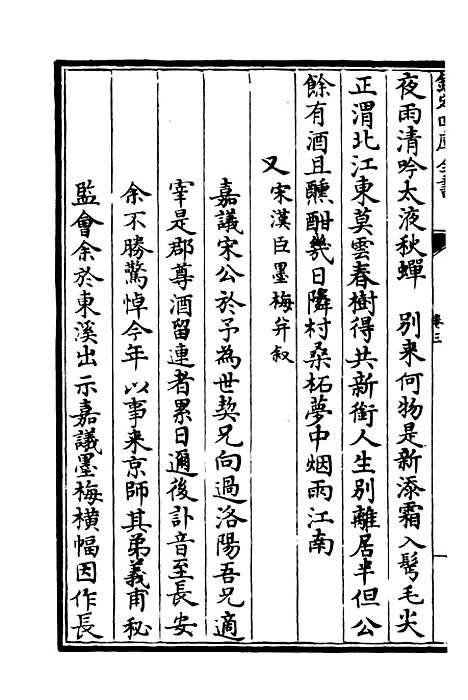 欽定四庫全書
卷三
夜雨清吟太液秋蟬　別来何物是新添霜入鬂毛尖
正渭北江東莫雲春樹得共新銜人生別離居半但公
餘有酒且醺酣幾日隣村桑柘夢中烟雨江南
又宋漢臣墨梅并叙
嘉議宋公於予為世契兄向過洛陽吾兄適
宰是郡尊酒留連者累日邇後訃音至長安
余不勝驚悼今年以事来京師其弟義甫秘
監會余於東溪出示嘉議墨梅横幅因作長